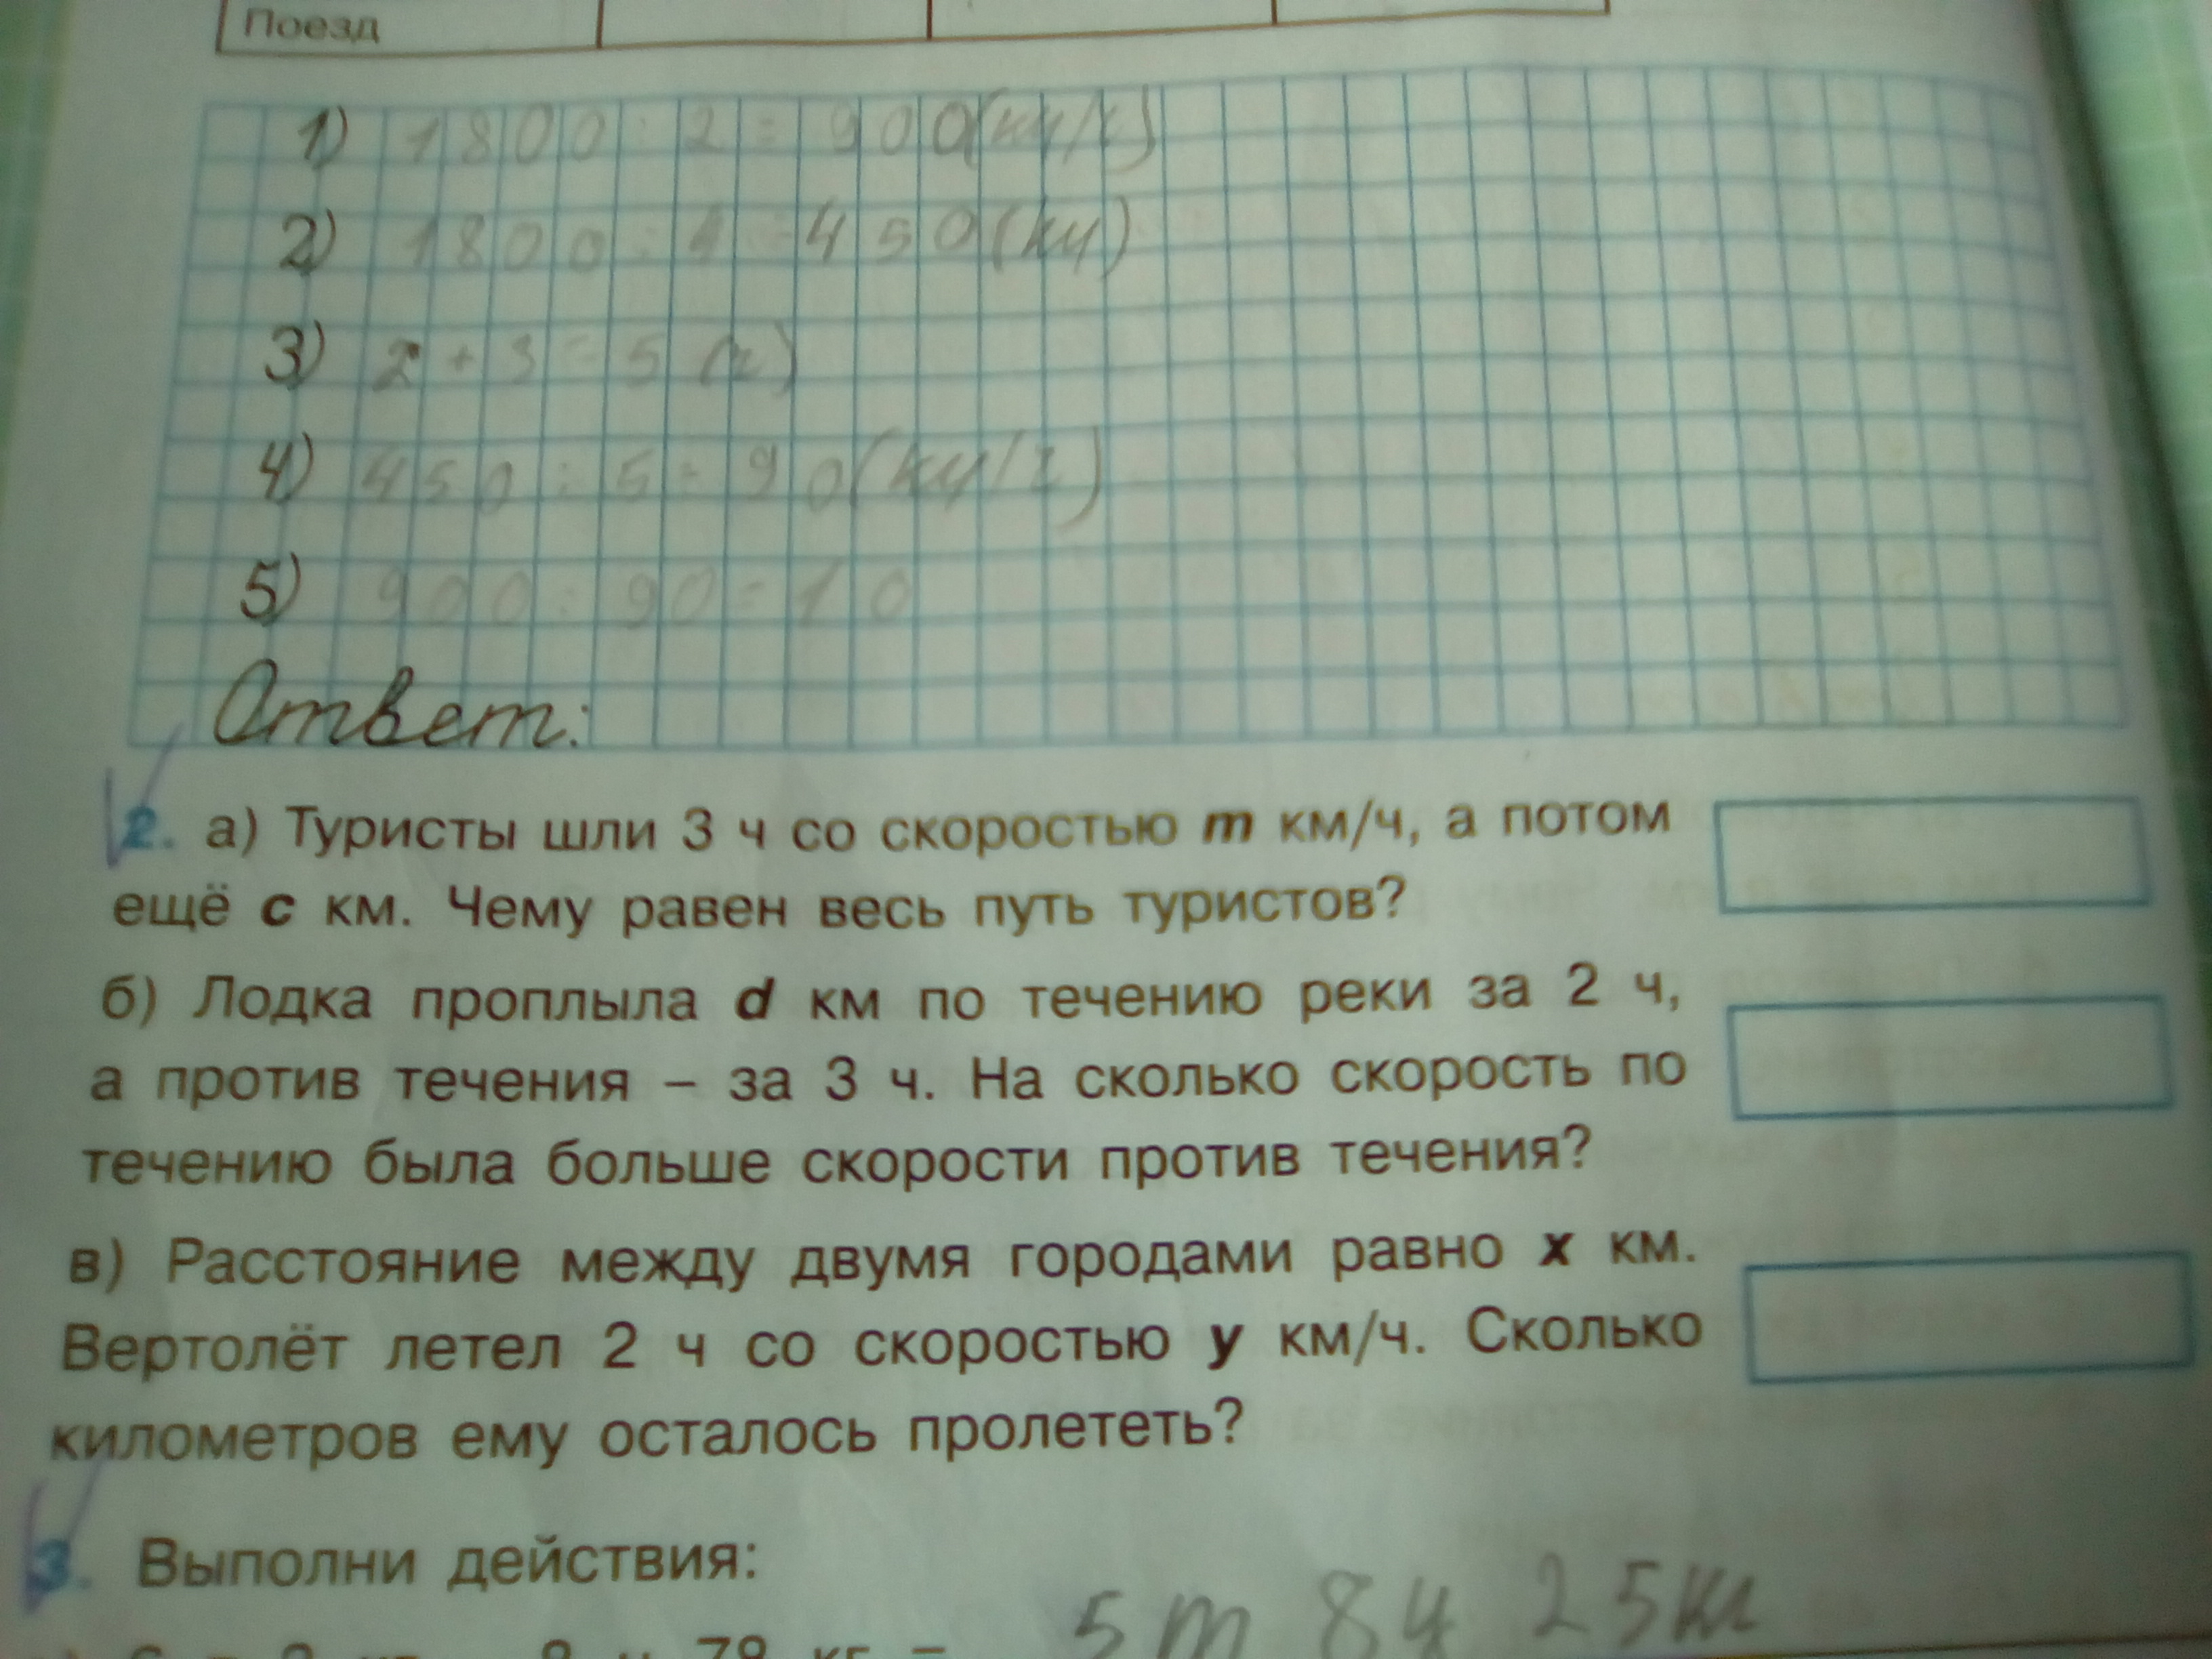 Поезд
1) 1800 : 2 = 900 (км/ч)
2) 1800 : 4 = 450 (км)
3) 2 + 3 = 5 (ч)
4) 450 : 5 = 90 (км/ч)
5) 900 : 90 = 10
Ответ:
2. а) Туристы шли 3 ч со скоростью m км/ч, а потом
ещё c км. Чему равен весь путь туристов?
б) Лодка проплыла d км по течению реки за 2 ч,
а против течения – за 3 ч. На сколько скорость по
течению была больше скорости против течения?
в) Расстояние между двумя городами равно x км.
Вертолёт летел 2 ч со скоростью y км/ч. Сколько
километров ему осталось пролететь?
3. Выполни действия:
5 т 8 ц 25 кг